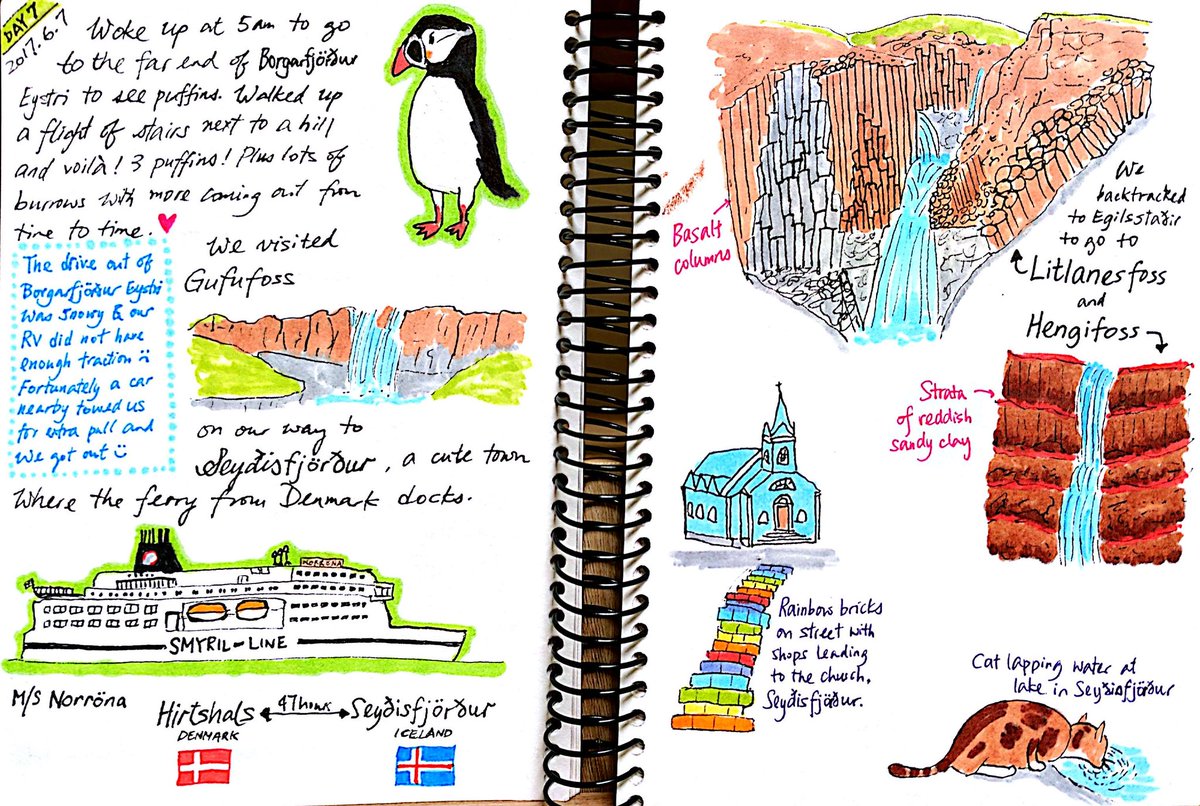 DAY 7
2017.6.7
Woke up at 5am to go
to the far end of Borgarfjörður
Eystri to see puffins. Walked up
a flight of stairs next to a hill
and voilà! 3 puffins! Plus lots of
burrows with more coming out from
time to time.
The drive out of
Borgarfjörður Eystri
was snowy & our
RV did not have
enough traction
Fortunately a car
nearby towed us
for extra pull and
we got out
We visited
Gufufoss
on our way to
Seyðisfjörður, a cute town
where the ferry from Denmark docks.
NORRÖNA
SMYRIL-LINE
M/S Norröna
Hirtshals
DENMARK
47hours
Seyðisfjörður
ICELAND
Basalt
columns
We
backtracked
to Egilsstaðir
to go to
Litlanesfoss
and
Hengifoss
Strata
of reddish
sandy clay
Rainbow bricks
on street with
shops leading
to the church,
Seyðisfjörður.
Cat lapping water at
lake in Seyðisfjörður